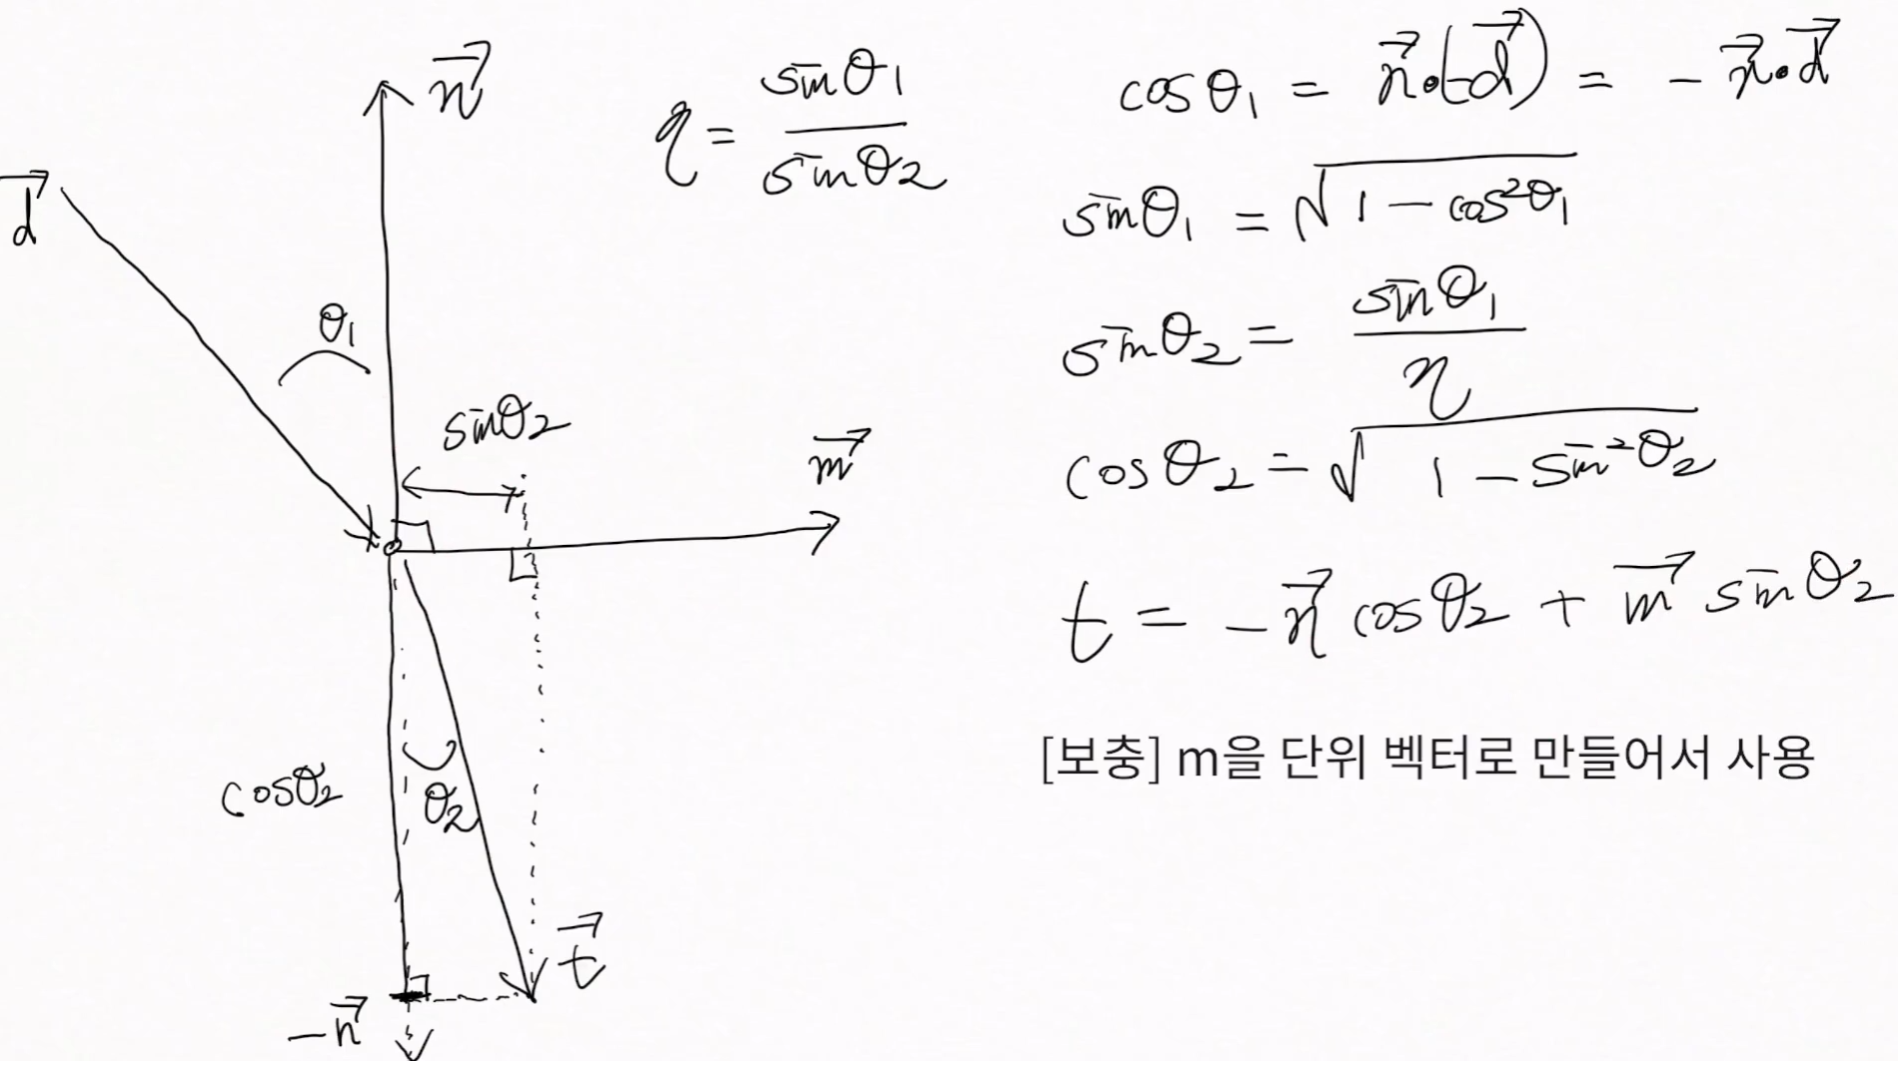 n⃗
d⃗
θ₁
sinθ₂
m⃗
cosθ₂
θ₂
t⃗
-n⃗
η = sinθ₁ / sinθ₂
cosθ₁ = n⃗·(-d⃗) = - n⃗·d⃗
sinθ₁ = √(1 - cos²θ₁)
sinθ₂ = sinθ₁ / η
cosθ₂ = √(1 - sin²θ₂)
t = -n⃗ cosθ₂ + m⃗ sinθ₂
[보충] m을 단위 벡터로 만들어서 사용